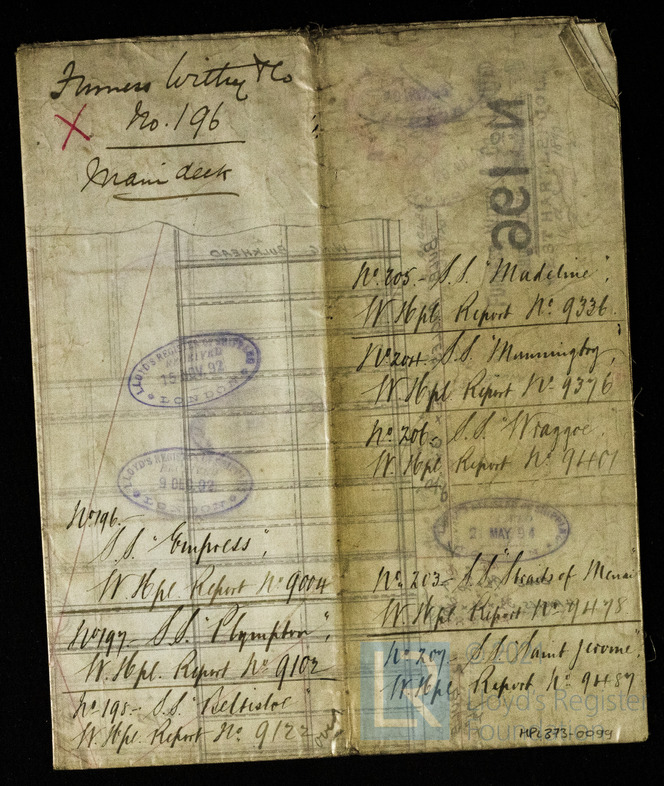 Furness Withy & Co
No. 196
Main deck
X
No 196
LLOYD'S REGISTER OF SHIPPING
RECEIVED
15 NOV 92
LONDON
LLOYD'S REGISTER OF SHIPPING
RECEIVED
9 DEC 92
LONDON
No 196.
S.S. "Empress",
W. Hpl. Report No 9004
No 197 - S.S. "Plympton",
W. Hpl. Report No. 9102
No. 198 - S.S. "Bellisloe"
W. Hpl. Report No. 9122
over
No. 205. - S.S. "Madeline",
W Hpl Report No. 9336.
No 204 - S.S.
W. Hpl Report No. 9376
No 206. S.S. "Wraggoe",
W. Hpl Report No. 9401
21 MAY 94
No. 203 - S.S. "Straits of Menai"
W. Hpl Report No. 9478
No. 207 - S.S. "Saint Jerome",
W Hpl. Report No. 9487
LR
Lloyd's Register
Foundation
HPL373-0099